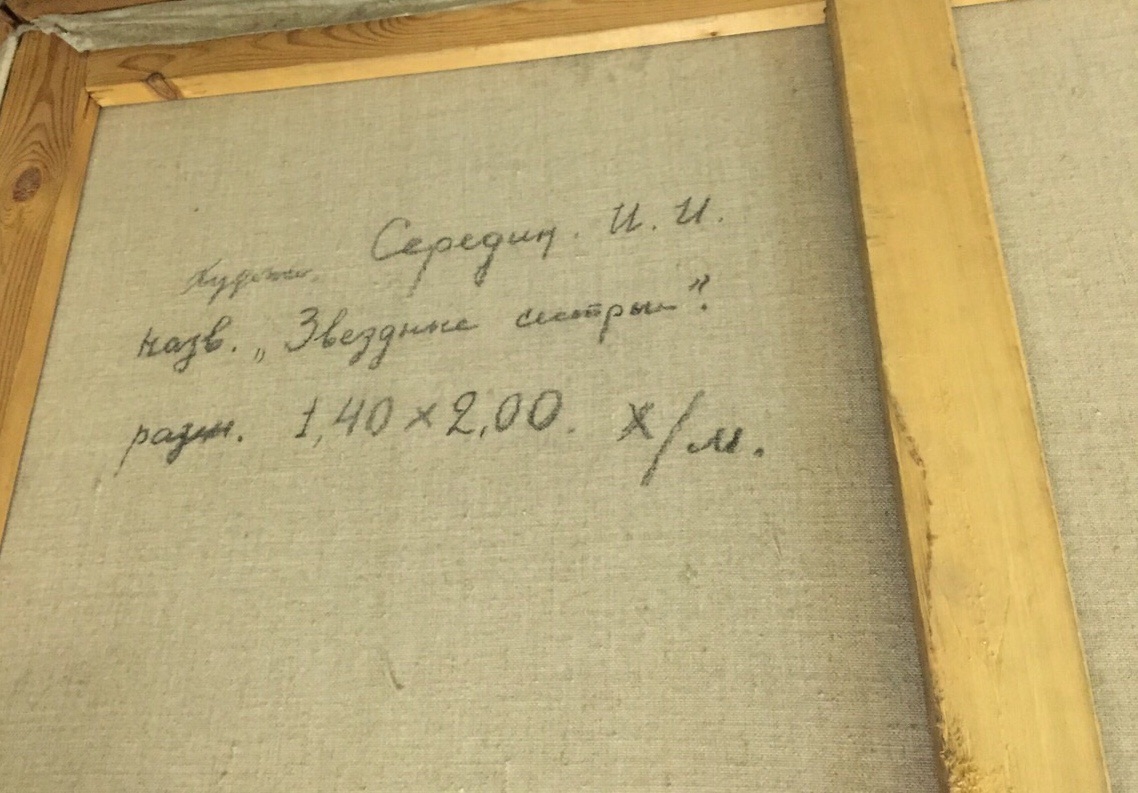 Середин. И. И.
худож.
назв. „Звездные сестры".
разм. 1,40 × 2,00. х/м.